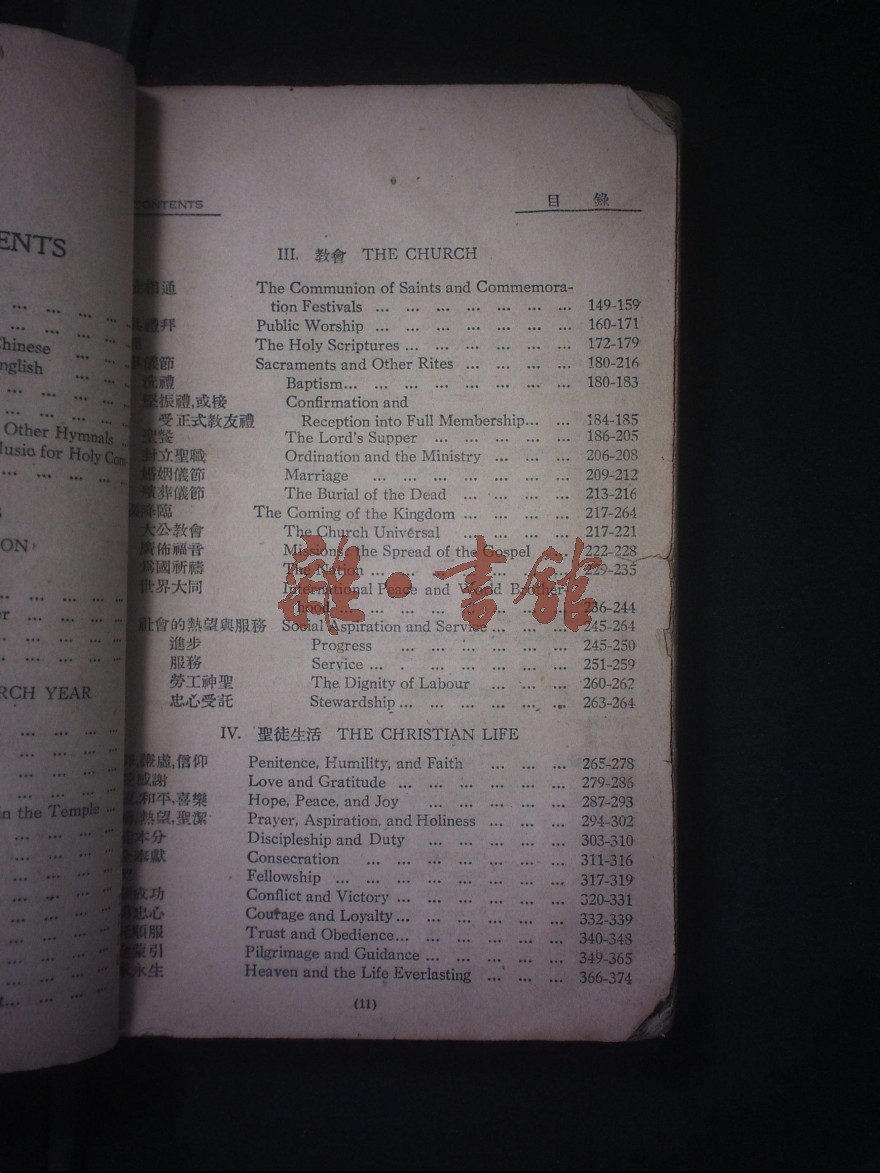 ENTS
Chinese
nglish
Other Hymnals
Music for Holy Com
ON
RCH YEAR
in the Temple
CONTENTS 目 錄
III. 教會 THE CHURCH
相通 The Communion of Saints and Commemora-
tion Festivals ... ... ... ... ... ... ... 149-159
禮拜 Public Worship ... ... ... ... ... ... ... 160-171
The Holy Scriptures ... ... ... ... ... ... 172-179
儀節 Sacraments and Other Rites ... ... ... ... 180-216
洗禮 Baptism... ... ... ... ... ... ... ... 180-183
堅振禮,或接 Confirmation and
受正式教友禮 Reception into Full Membership... ... 184-185
聖餐 The Lord's Supper ... ... ... ... ... 186-205
封立聖職 Ordination and the Ministry ... ... ... 206-208
婚姻儀節 Marriage ... ... ... ... ... ... ... 209-212
殯葬儀節 The Burial of the Dead ... ... ... ... 213-216
降臨 The Coming of the Kingdom ... ... ... ... 217-264
大公教會 The Church Universal ... ... ... ... 217-221
廣佈福音 Missions: the Spread of the Gospel ... 222-228
爲國祈禱 The Nation ... ... ... ... ... ... 229-235
世界大同 International Peace and World Brother-
hood ... ... ... ... ... ... ... 236-244
社會的熱望與服務 Social Aspiration and Service ... ... ... 245-264
進步 Progress ... ... ... ... ... ... 245-250
服務 Service ... . ... ... ... ... ... 251-259
勞工神聖 The Dignity of Labour ... ... ... 260-262
忠心受託 Stewardship ... ... ... ... ... ... 263-264
IV. 聖徒生活 THE CHRISTIAN LIFE
謙虛,信仰 Penitence, Humility, and Faith ... ... ... 265-278
感謝 Love and Gratitude ... ... ... ... ... ... 279-286
和平,喜樂 Hope, Peace, and Joy ... ... ... ... ... 287-293
熱望,聖潔 Prayer, Aspiration, and Holiness ... ... ... 294-302
本分 Discipleship and Duty ... ... ... ... ... 303-310
奉獻 Consecration ... ... ... ... ... ... ... 311-316
Fellowship ... ... ... ... ... ... ... ... 317-319
成功 Conflict and Victory ... ... ... ... ... ... 320-331
忠心 Courage and Loyalty... ... ... ... ... ... 332-339
順服 Trust and Obedience... ... ... ... ... ... 340-348
蒙引 Pilgrimage and Guidance ... ... ... ... ... 349-365
永生 Heaven and the Life Everlasting ... ... ... 366-374
(11)
雜·書館